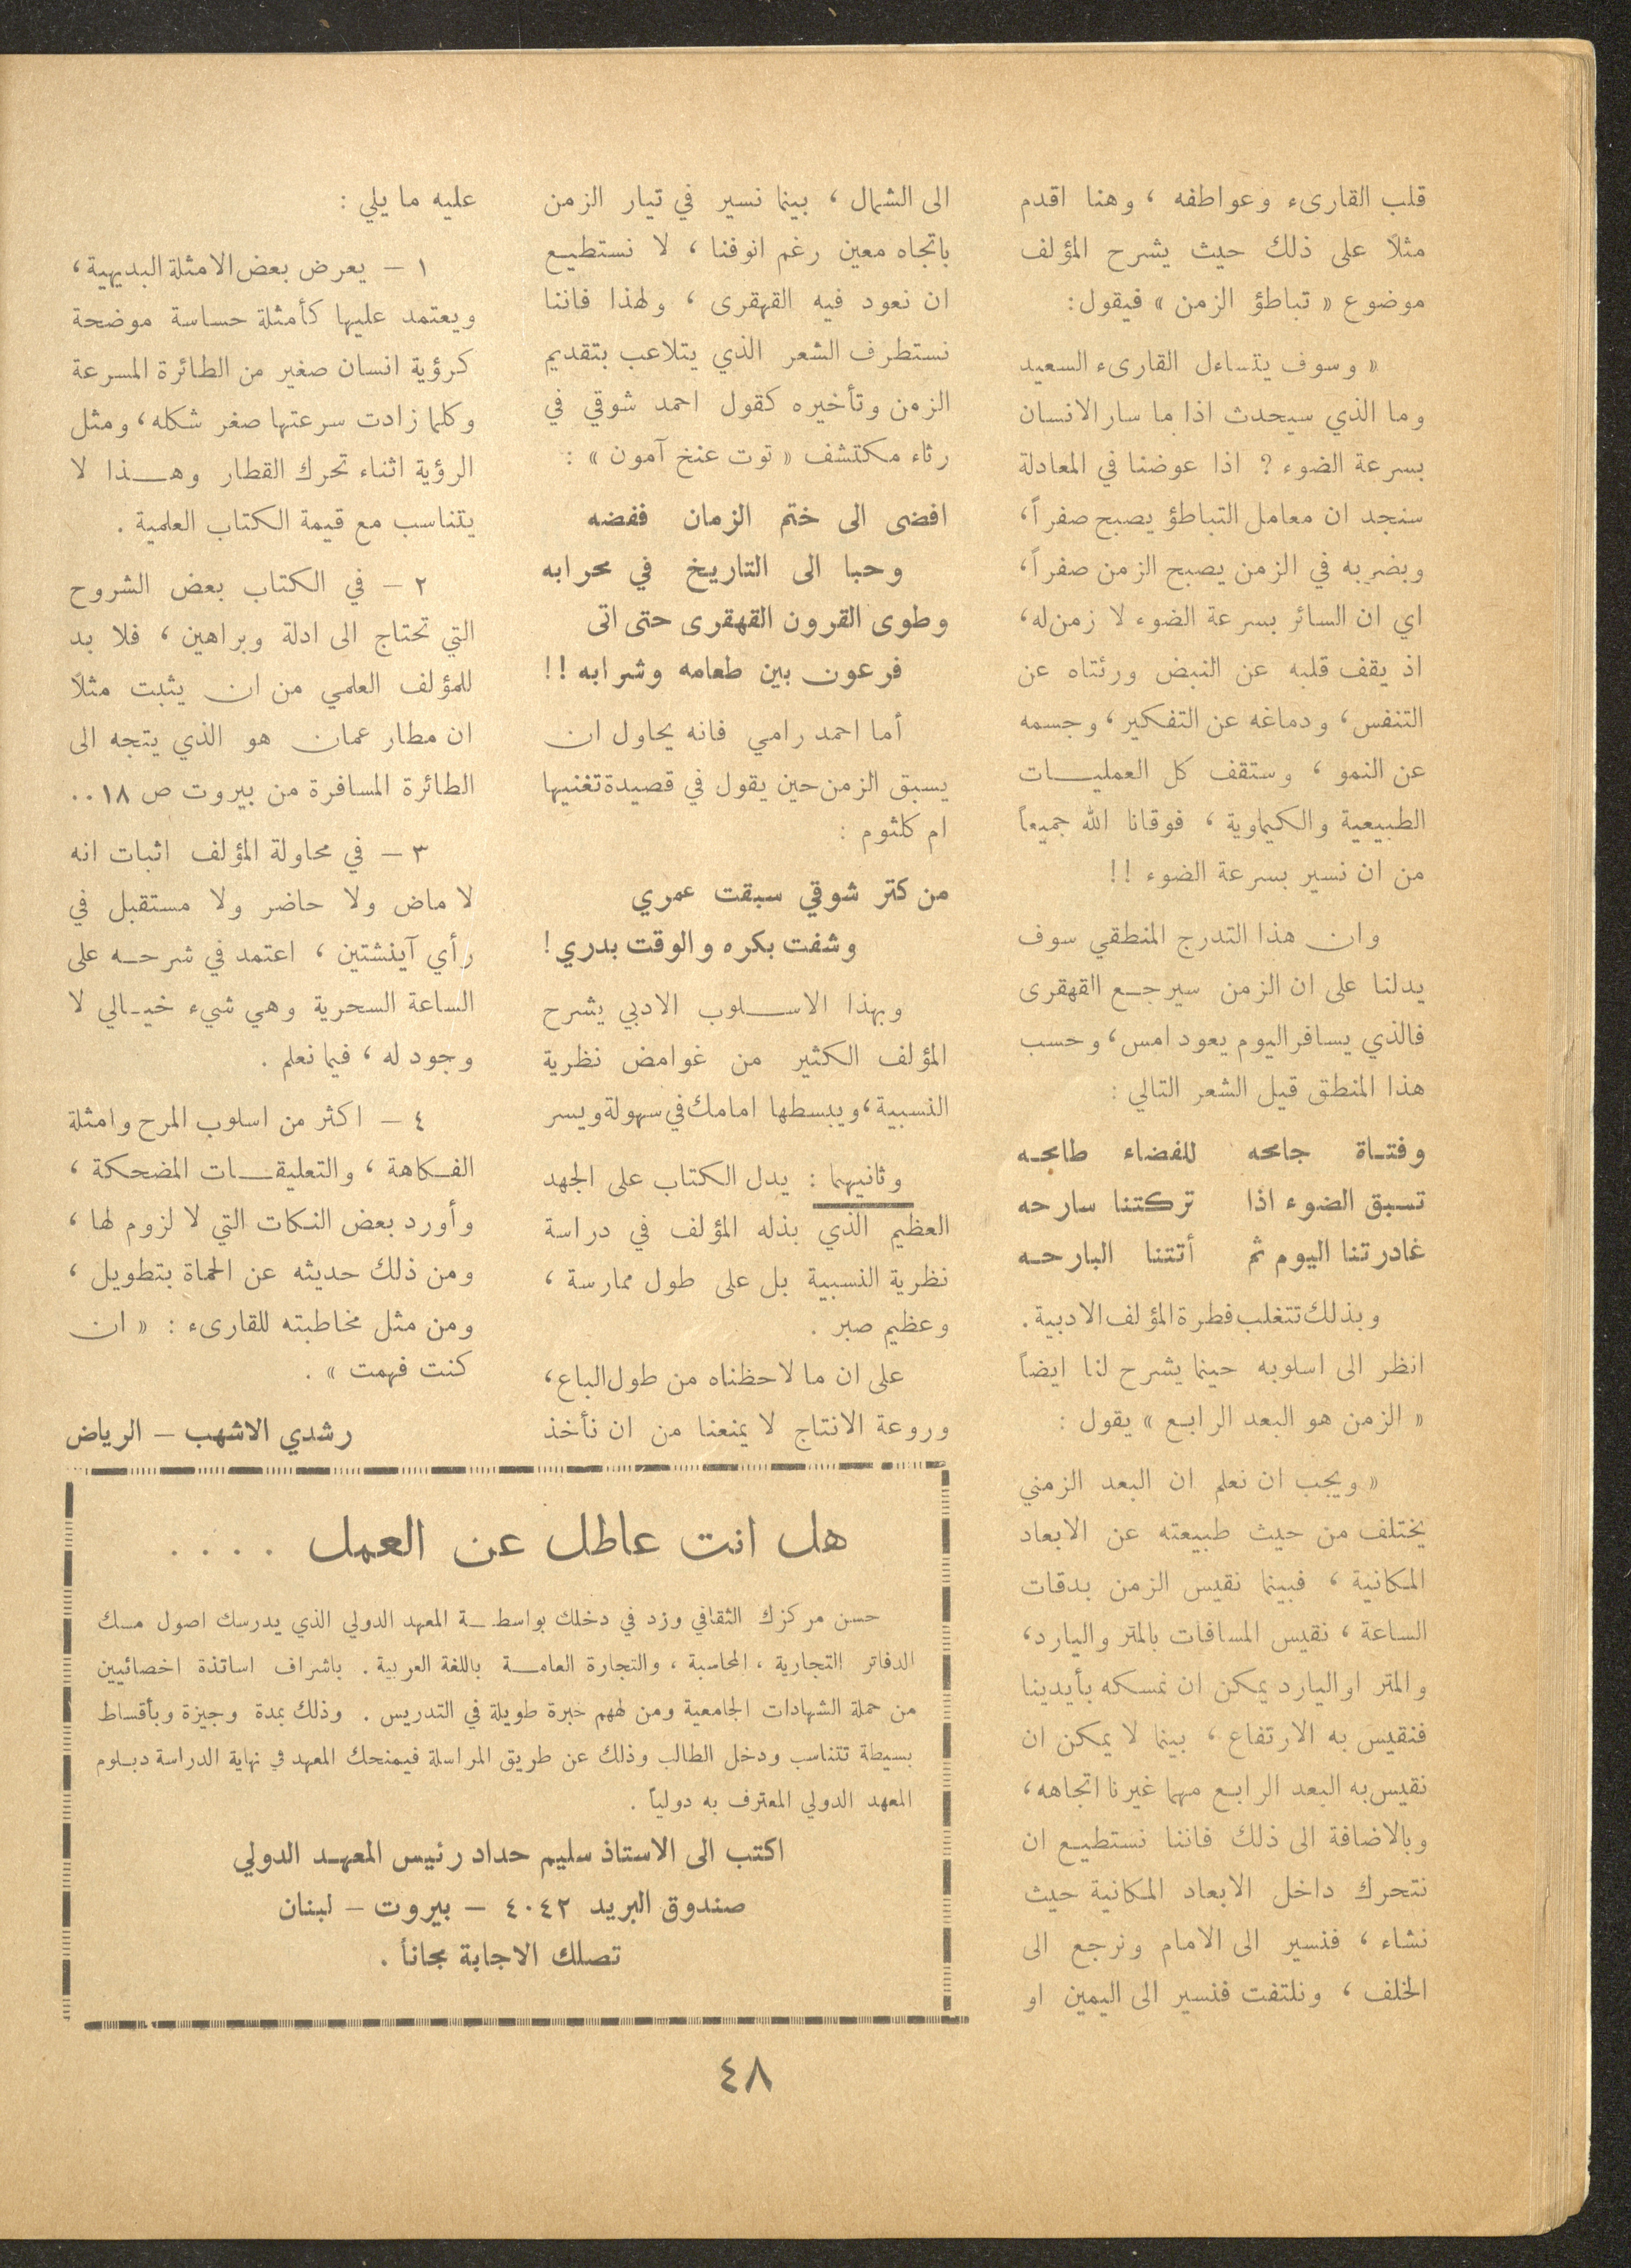 قلب القارىء وعواطفه ، وهنا اقدم
مثلاً على ذلك حيث يشرح المؤلف
موضوع « تباطؤ الزمن » فيقول :
« وسوف يتساءل القارىء السعيد
وما الذي سيحدث اذا ما سار الانسان
بسرعة الضوء ? اذا عوضنا في المعادلة
سنجد ان معامل التباطؤ يصبح صفراً،
وبضربه في الزمن يصبح الزمن صفراً،
اي ان السائر بسرعة الضوء لا زمن له،
اذ يقف قلبه عن النبض ورئتاه عن
التنفس، ودماغه عن التفكير، وجسمه
عن النمو ، وستقف كل العمليـــات
الطبيعية والكيماوية ، فوقانا الله جميعاً
من ان نسير بسرعة الضوء !!
وان هذا التدرج المنطقي سوف
يدلنا على ان الزمن سيرجــع القهقرى
فالذي يسافر اليوم يعود امس، وحسب
هذا المنطق قيل الشعر التالي :
وفتــاة جامحه للفضاء طامحـه
تسبق الضوء اذا تركتنا سارحه
غادرتنا اليوم ثم أتتنا البارحــه
وبذلك تتغلب فطرة المؤلف الادبية .
انظر الى اسلوبه حينما يشرح لنا ايضاً
« الزمن هو البعد الرابــع » يقول :
« ويجب ان نعلم ان البعد الزمني
يختلف من حيث طبيعته عن الابعاد
المكانية ، فبينما نقيس الزمن بدقات
الساعة ، نقيس المسافات بالمتر واليارد،
والمتر او اليارد يمكن ان نمسكه بأيدينا
فنقيس به الارتفاع ، بينما لا يمكن ان
نقيس به البعد الرابــع مهما غيرنا اتجاهه،
وبالاضافة الى ذلك فاننا نستطيــع ان
نتحرك داخل الابعاد المكانية حيث
نشاء ، فنسير الى الامام ونرجع الى
الخلف ، ونلتفت فنسير الى اليمين او
الى الشمال ، بينما نسير في تيار الزمن
باتجاه معين رغم انوفنا ، لا نستطيــع
ان نعود فيه القهقرى ، ولهذا فاننا
نستطرف الشعر الذي يتلاعب بتقديم
الزمن وتأخيره كقول احمد شوقي في
رثاء مكتشف « توت عنخ آمون » :
افضى الى ختم الزمان ففضه
وحبا الى التاريــخ في محرابه
وطوى القرون القهقرى حتى اتى
فرعون بين طعامه وشرابه !!
أما احمد رامي فانه يحاول ان
يسبق الزمن حين يقول في قصيدة تغنيها
ام كلثوم :
من كتر شوقي سبقت عمري
وشفت بكره والوقت بدري !
وبهذا الاســـلوب الادبي يشرح
المؤلف الكثير من غوامض نظرية
النسبية، ويبسطها امامك في سهولة ويسر
وثانيهما : يدل الكتاب على الجهد
العظيم الذي بذله المؤلف في دراسة
نظرية النسبية بل على طول ممارسة ،
وعظيم صبر .
على ان ما لاحظناه من طول الباع،
وروعة الانتاج لا يمنعنا من ان نأخذ
عليه ما يلي :
١ – يعرض بعض الامثلة البديهية ،
ويعتمد عليها كأمثلة حساسة موضحة
كرؤية انسان صغير من الطائرة المسرعة
وكلما زادت سرعتها صغر شكله، ومثل
الرؤية اثناء تحرك القطار وهـــذا لا
يتناسب مع قيمة الكتاب العلمية .
٢ – في الكتاب بعض الشروح
التي تحتاج الى ادلة وبراهين ، فلا بد
للمؤلف العلمي من ان يثبت مثلاً
ان مطار عمان هو الذي يتجه الى
الطائرة المسافرة من بيروت ص ١٨ ..
٣ – في محاولة المؤلف اثبات انه
لا ماض ولا حاضر ولا مستقبل في
رأي آينشتين ، اعتمد في شرحــه على
الساعة السحرية وهي شيء خيــالي لا
وجود له ، فيما نعلم .
٤ – اكثر من اسلوب المرح وامثلة
الفــكاهة ، والتعليقـــات المضحكة ،
وأورد بعض النكات التي لا لزوم لها ،
ومن ذلك حديثه عن الحماة بتطويل ،
ومن مثل مخاطبته للقارىء : « ان
كنت فهمت » .
رشدي الاشهب – الرياض
هل انت عاطل عن العمل . . . .
حسن مركزك الثقافي وزد في دخلك بواسطــة المعهد الدولي الذي يدرسك اصول مسك
الدفاتر التجارية ، المحاسبة ، والتجارة العامــــة باللغة العربية . باشراف اساتذة اخصائيين
من حملة الشهادات الجامعية ومن لهم خبرة طويلة في التدريس . وذلك بمدة وجيزة وبأقساط
بسيطة تتناسب ودخل الطالب وذلك عن طريق المراسلة فيمنحك المعهد في نهاية الدراسة دبــلوم
المعهد الدولي المعترف به دولياً .
اكتب الى الاستاذ سليم حداد رئيس المعهــد الدولي
صندوق البريد ٤٠٤٢ – بيروت – لبنان
تصلك الاجابة مجاناً .
٤٨